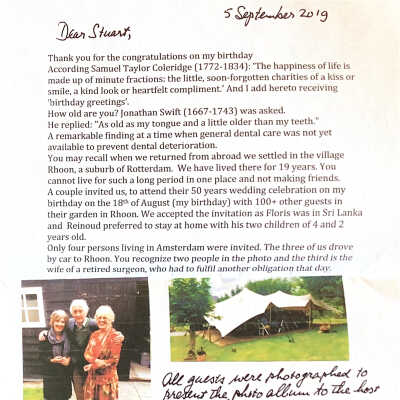 5 September 2019
Dear Stuart,
Thank you for the congratulations on my birthday
According Samuel Taylor Coleridge (1772-1834): 'The happiness of life is
made up of minute fractions: the little, soon-forgotten charities of a kiss or
smile, a kind look or heartfelt compliment.' And I add hereto receiving
'birthday greetings'.
How old are you? Jonathan Swift (1667-1743) was asked.
He replied: "As old as my tongue and a little older than my teeth."
A remarkable finding at a time when general dental care was not yet
available to prevent dental deterioration.
You may recall when we returned from abroad we settled in the village
Rhoon, a suburb of Rotterdam. We have lived there for 19 years. You
cannot live for such a long period in one place and not making friends.
A couple invited us, to attend their 50 years wedding celebration on my
birthday on the 18th of August (my birthday) with 100+ other guests in
their garden in Rhoon. We accepted the invitation as Floris was in Sri Lanka
and Reinoud preferred to stay at home with his two children of 4 and 2
years old.
Only four persons living in Amsterdam were invited. The three of us drove
by car to Rhoon. You recognize two people in the photo and the third is the
wife of a retired surgeon, who had to fulfil another obligation that day.
All guests were photographed to
present the photo album to the host